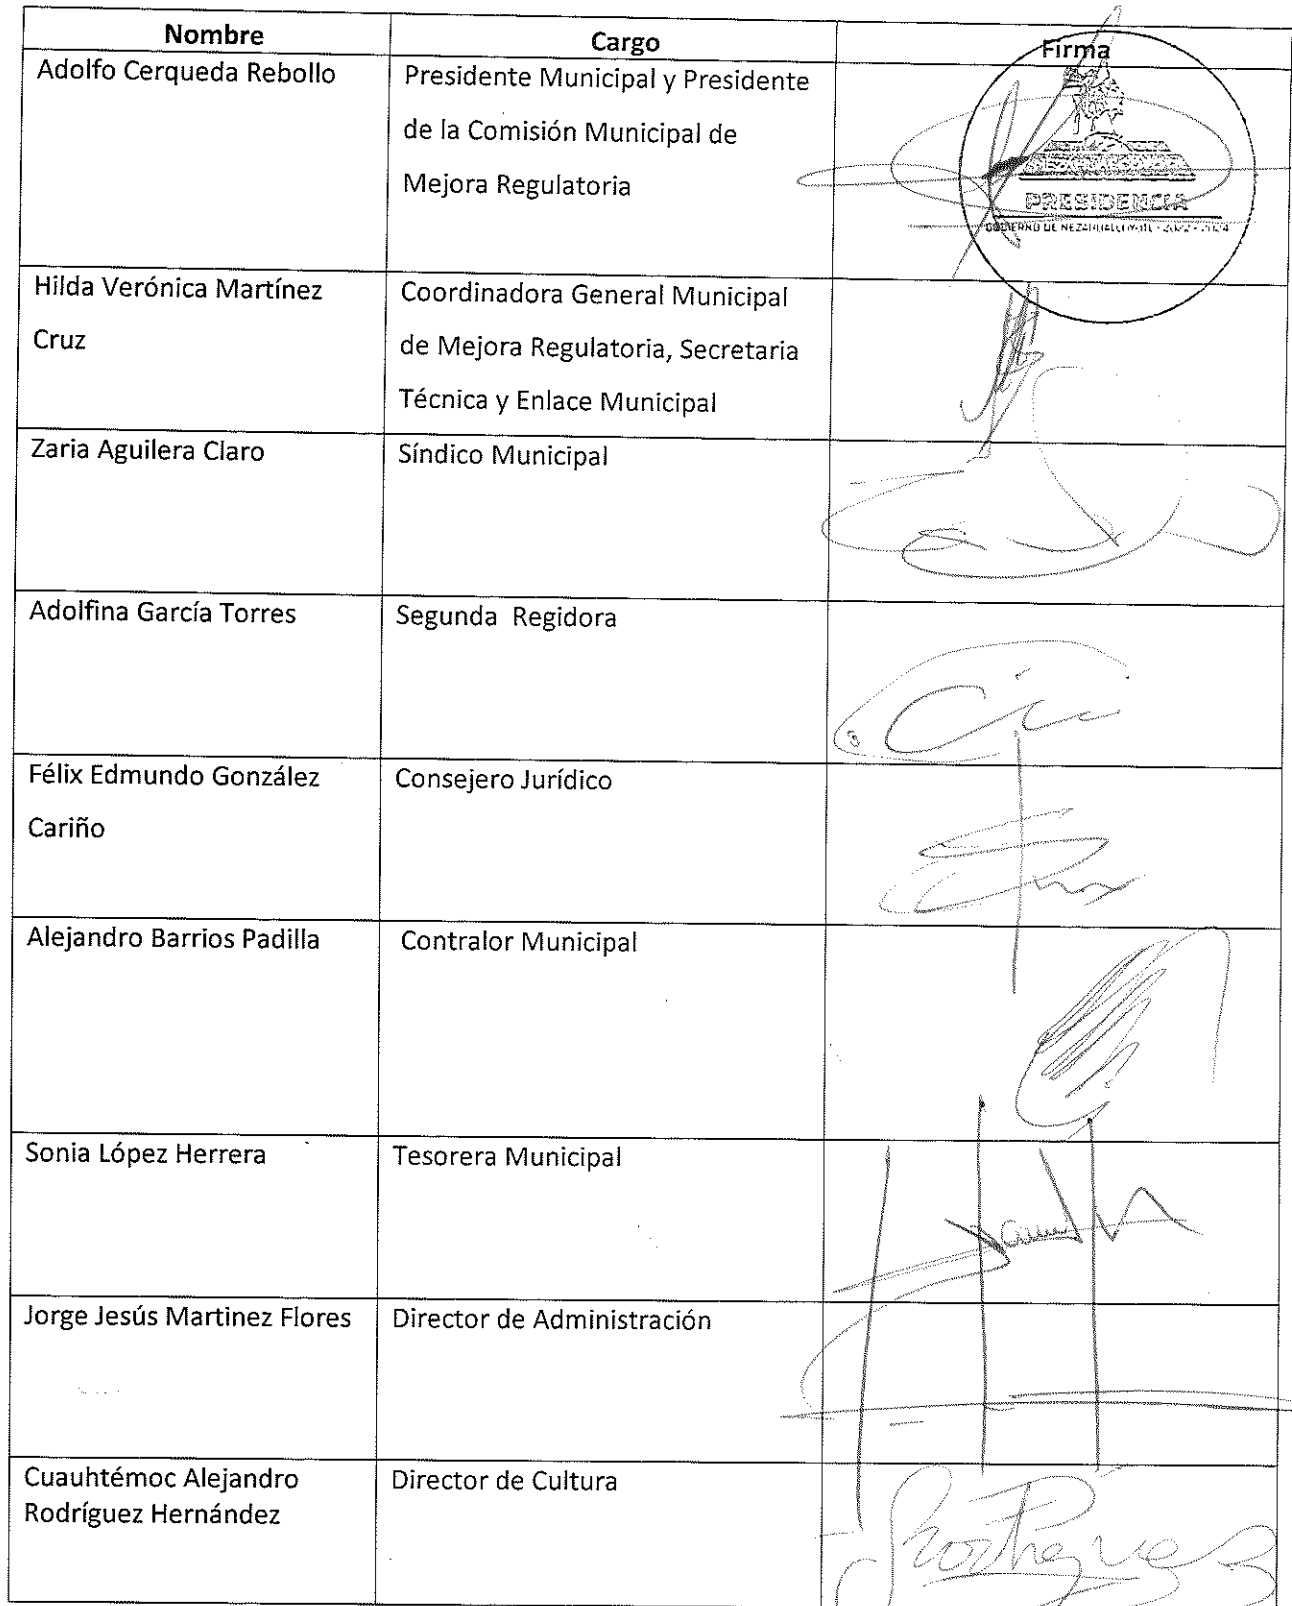 Nombre
Cargo
Firma
Adolfo Cerqueda Rebollo
Presidente Municipal y Presidente
de la Comisión Municipal de
Mejora Regulatoria
PRESIDENCIA
GOBIERNO DE NEZAHUALCÓYOTL - 2022 - 2024
Hilda Verónica Martínez
Cruz
Coordinadora General Municipal
de Mejora Regulatoria, Secretaria
Técnica y Enlace Municipal
Zaria Aguilera Claro
Síndico Municipal
Adolfina García Torres
Segunda Regidora
Félix Edmundo González
Cariño
Consejero Jurídico
Alejandro Barrios Padilla
Contralor Municipal
Sonia López Herrera
Tesorera Municipal
Jorge Jesús Martinez Flores
Director de Administración
Cuauhtémoc Alejandro
Rodríguez Hernández
Director de Cultura